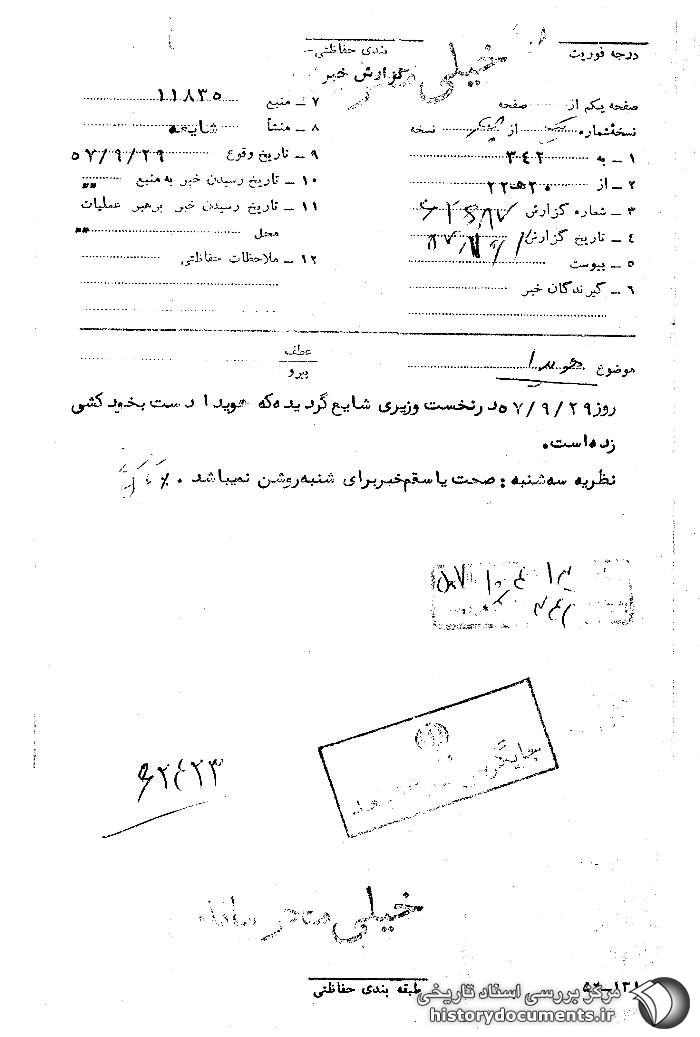 درجه فوریت
بندی حفاظتی
خیلی محرمانه
گزارش خبر
صفحه یکم از صفحه
نسخه شماره از نسخه
۱ ـ به ۳۴۲
۲ ـ از ۲۰ه۲۲
۳ ـ شماره گزارش
۴ ـ تاریخ گزارش
۵ ـ پیوست
۶ ـ گیرندگان خبر
۷ ـ منبع ۱۱۸۳۵
۸ ـ منشأ شایعه
۹ ـ تاریخ وقوع ۵۷/۹/۲۹
۱۰ ـ تاریخ رسیدن خبر به منبع "
۱۱ ـ تاریخ رسیدن خبر برهبر عملیات
محل "
۱۲ ـ ملاحظات حفاظتی
موضوع هویدا
عطف
پیرو
روز ۵۷/۹/۲۹ در نخست وزیری شایع گردیده که هویدا دست بخود کشی
زده است.
نظریه سه شنبه : صحت یا سقم خبر برای شنبه روشن نمیباشد .
جایگزین
۶۲۴۲۳
خیلی محرمانه
طبقه بندی حفاظتی
۵۲-۱۳۱
مرکز بررسی اسناد تاریخی
historydocuments.ir